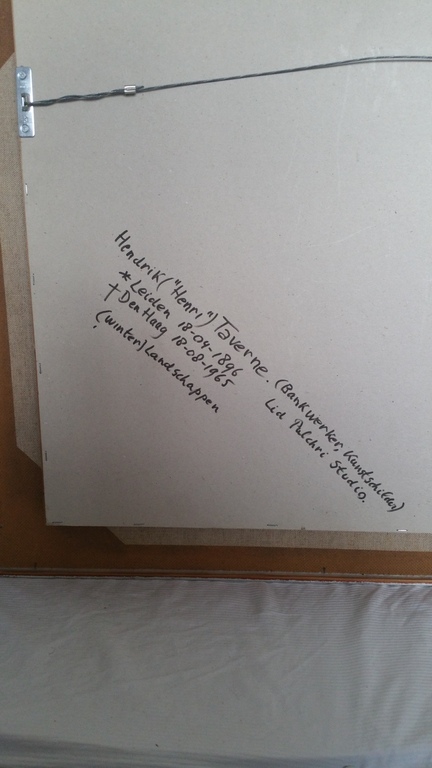 Hendrik ("Henri") Taverne. (Bankwerker, Kunstschilder)
* Leiden 18-04-1896
† Den Haag 18-08-1965
Lid Pulchri Studio.
(winter) Landschappen